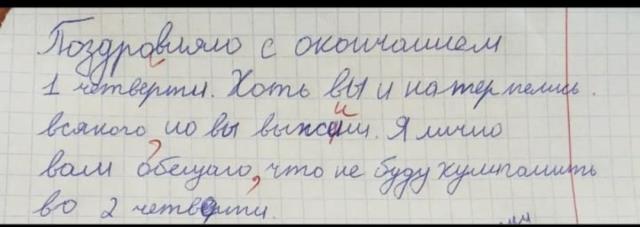 Поздравляю с окончанием
1 четверти. Хоть вы и натерпелись
всякого, но вы выжили. Я лично
вам обещаю, что не буду хулиганить
во 2 четверти.